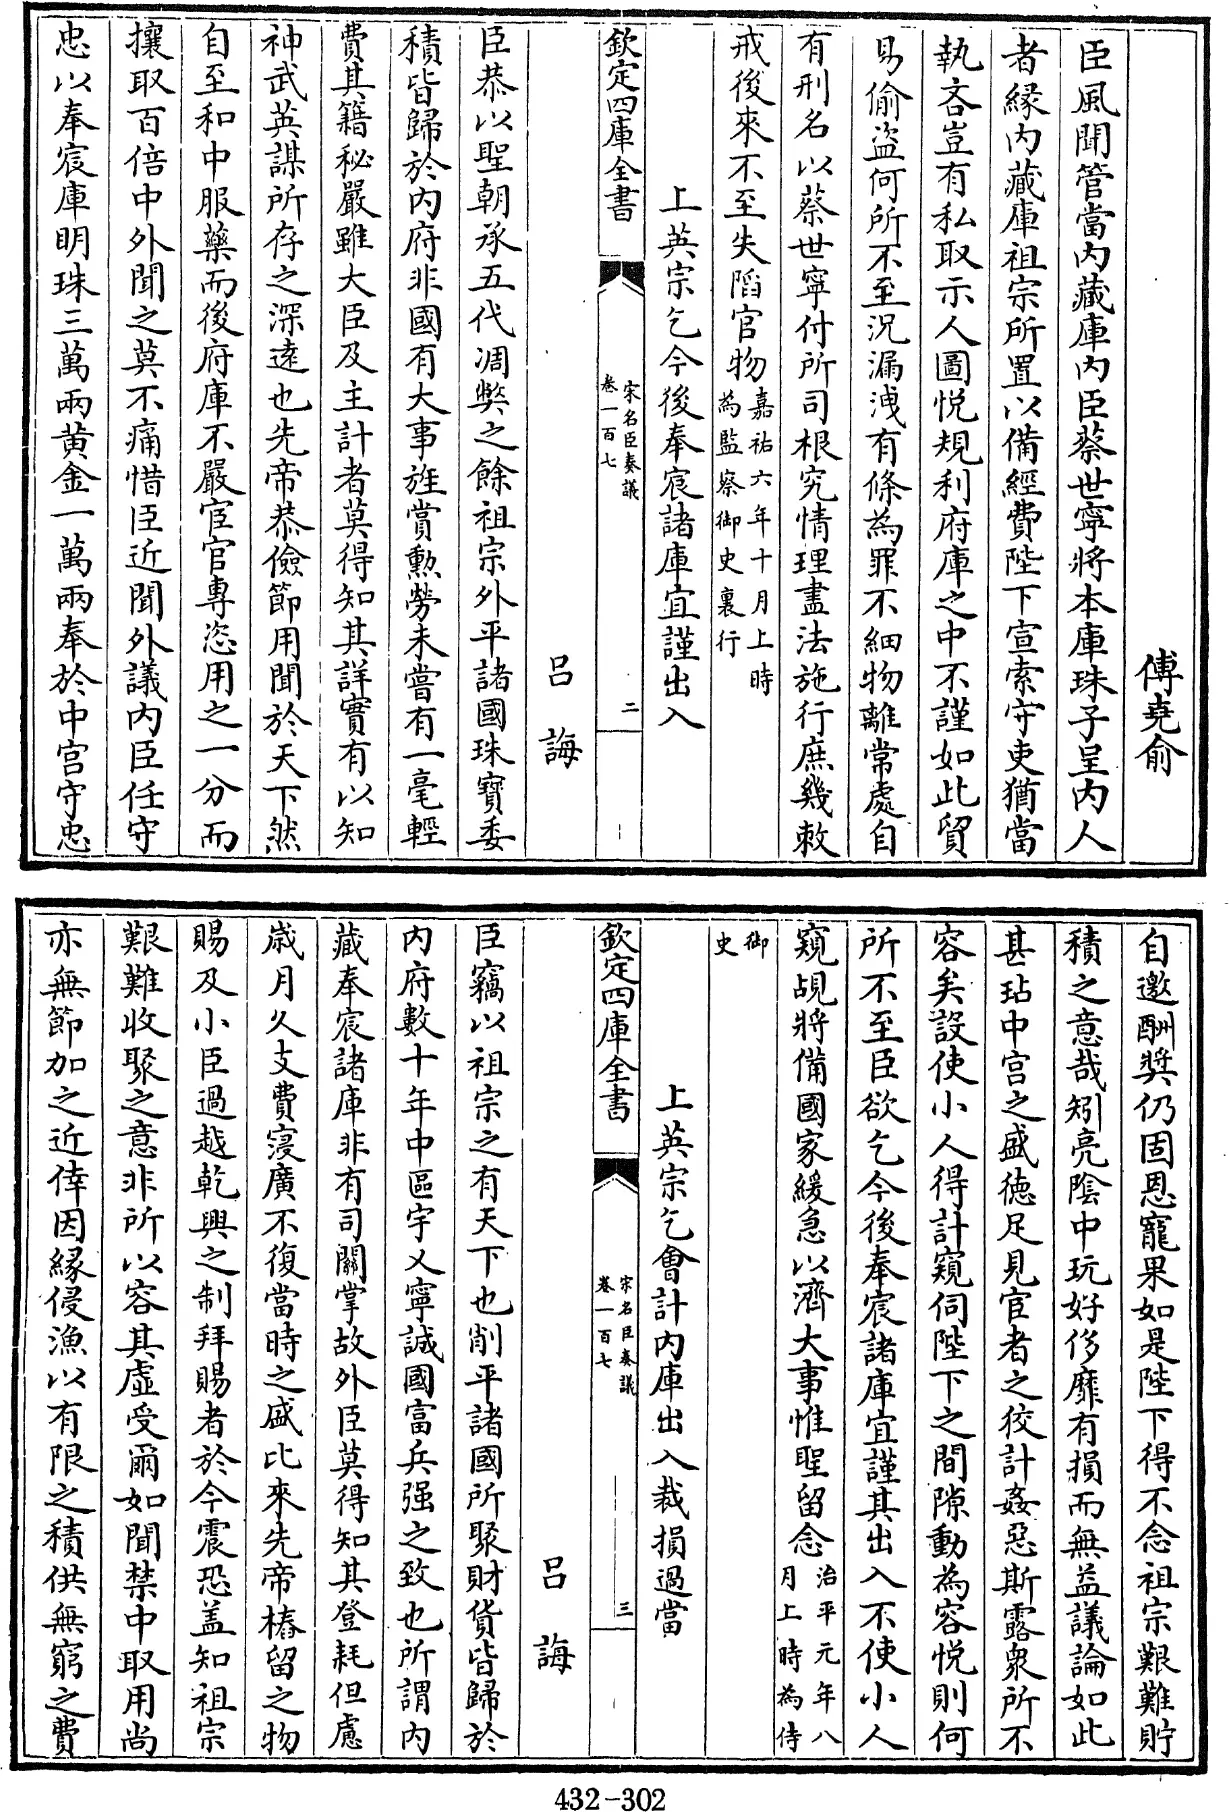 傅堯俞
臣風聞管當内藏庫内臣蔡世寧將本庫珠子呈内人
者緣内藏庫祖宗所置以備經費陛下宣索守吏猶當
執吝豈有私取示人圖悦規利府庫之中不謹如此貿
易偷盗何所不至況漏洩有條為罪不細物離常處自
有刑名以蔡世寧付所司根究情理盡法施行庶幾敕
戒後來不至失䧟官物嘉祐六年十月上時
為監察御史裏行
上英宗乞今後奉宸諸庫宜謹出入
欽定四庫全書
宋名臣奏議
卷一百七
二
吕誨
臣恭以聖朝承五代凋弊之餘祖宗外平諸國珠寶委
積皆歸於内府非國有大事旌賞勲勞未嘗有一毫輕
費其籍秘嚴雖大臣及主計者莫得知其詳實有以知
神武英謀所存之深遠也先帝恭儉節用聞於天下然
自至和中服藥而後府庫不嚴宦官專恣用之一分而
攘取百倍中外聞之莫不痛惜臣近聞外議内臣任守
忠以奉宸庫明珠三萬兩黄金一萬兩奉於中宫守忠
自邀酬奬仍固恩寵果如是陛下得不念祖宗艱難貯
積之意哉矧亮陰中玩好侈靡有損而無益議論如此
甚玷中宫之盛徳足見宦者之狡計姦惡斯露衆所不
容矣設使小人得計窺伺陛下之間隙動為容悦則何
所不至臣欲乞今後奉宸諸庫宜謹其出入不使小人
窺覘將備國家緩急以濟大事惟聖留念治平元年八
月上時為侍
御
史
上英宗乞會計内庫出入裁損過當
欽定四庫全書
宋名臣奏議
卷一百七
三
吕誨
臣竊以祖宗之有天下也削平諸國所聚財貨皆歸於
内府數十年中區宇乂寧誠國富兵强之致也所謂内
藏奉宸諸庫非有司關掌故外臣莫得知其登耗但慮
歳月久支費寖廣不復當時之盛比來先帝樁留之物
賜及小臣過越乾興之制拜賜者於今震恐盖知祖宗
艱難收聚之意非所以容其虚受爾如聞禁中取用尚
亦無節加之近倖因縁侵漁以有限之積供無窮之費
432-302